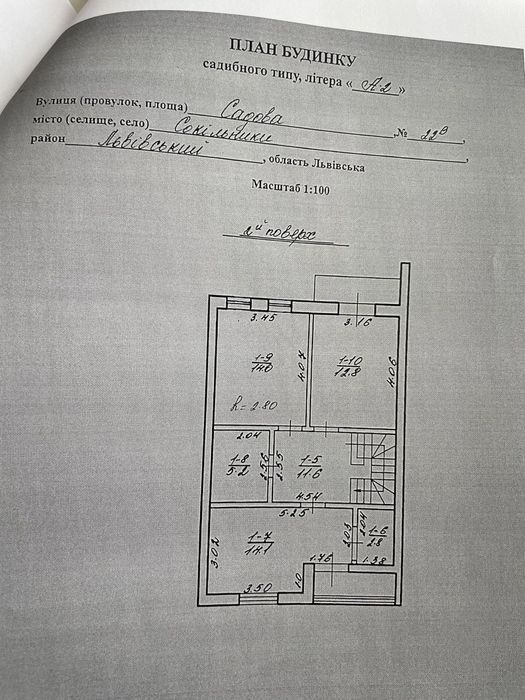 ПЛАН БУДИНКУ
садибного типу, літера « А-2 »
Вулиця (провулок, площа) Садова, № 22в,
місто (селище, село) Сокільники,
район Львівський, область Львівська
Масштаб 1:100
2й поверх
3.45
3.16
1-9
14.0
4.07
1-10
12.8
4.06
h = 2.80
2.04
1-8
5.2
2.56
2.55
1-5
11.6
4.54
5.25
1-7
14.1
3.02
2.03
2.04
1-6
2.8
1.76
1.38
1.0
3.50